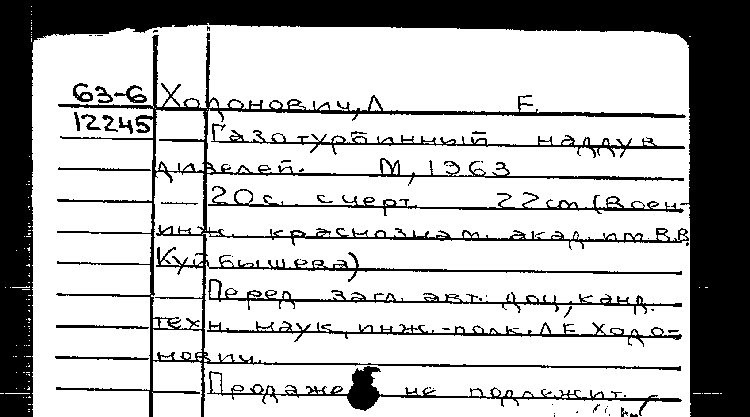 63-6 Ходонович, Л Е.
12245 Газотурбинный наддув
дизелей. М, 1963
20с. с черт 22 cm (Воен-
инж. краснознам. акад. им. В.В
Куйбышева)
Перед загл. авт: доц, канд.
техн. наук, инж.-полк. Л Е Ходо-
нович.
Продаже не подлежит.